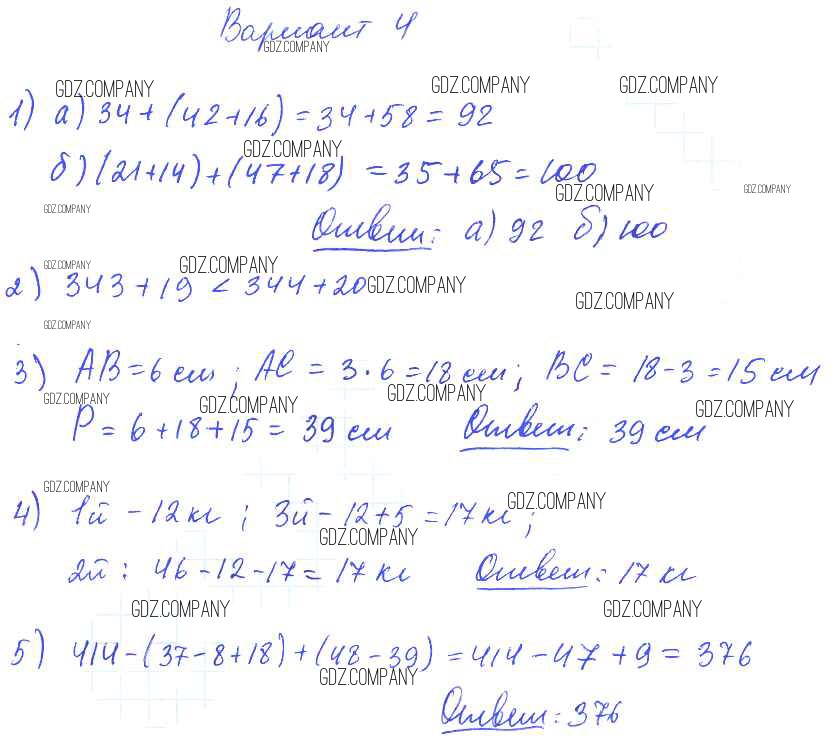 Вариант 4
GDZ.COMPANY
GDZ.COMPANY GDZ.COMPANY GDZ.COMPANY
1) а) 34 + (42+16) = 34+58 = 92
GDZ.COMPANY
б) (21+14) + (47+18) = 35+65 = 100
GDZ.COMPANY GDZ.COMPANY
GDZ.COMPANY
Ответ: а) 92 б) 100
GDZ.COMPANY GDZ.COMPANY
2) 343 + 19 < 344 + 20 GDZ.COMPANY
GDZ.COMPANY
GDZ.COMPANY
3) AB = 6 см ; AC = 3 · 6 = 18 см ; BC = 18 - 3 = 15 см
GDZ.COMPANY GDZ.COMPANY GDZ.COMPANY GDZ.COMPANY
P = 6 + 18 + 15 = 39 см Ответ: 39 см
GDZ.COMPANY GDZ.COMPANY
4) 1й - 12 кг ; 3й - 12 + 5 = 17 кг ;
GDZ.COMPANY
2й : 46 - 12 - 17 = 17 кг Ответ: 17 кг
GDZ.COMPANY GDZ.COMPANY
5) 414 - (37 - 8 + 18) + (48 - 39) = 414 - 47 + 9 = 376
GDZ.COMPANY
Ответ: 376